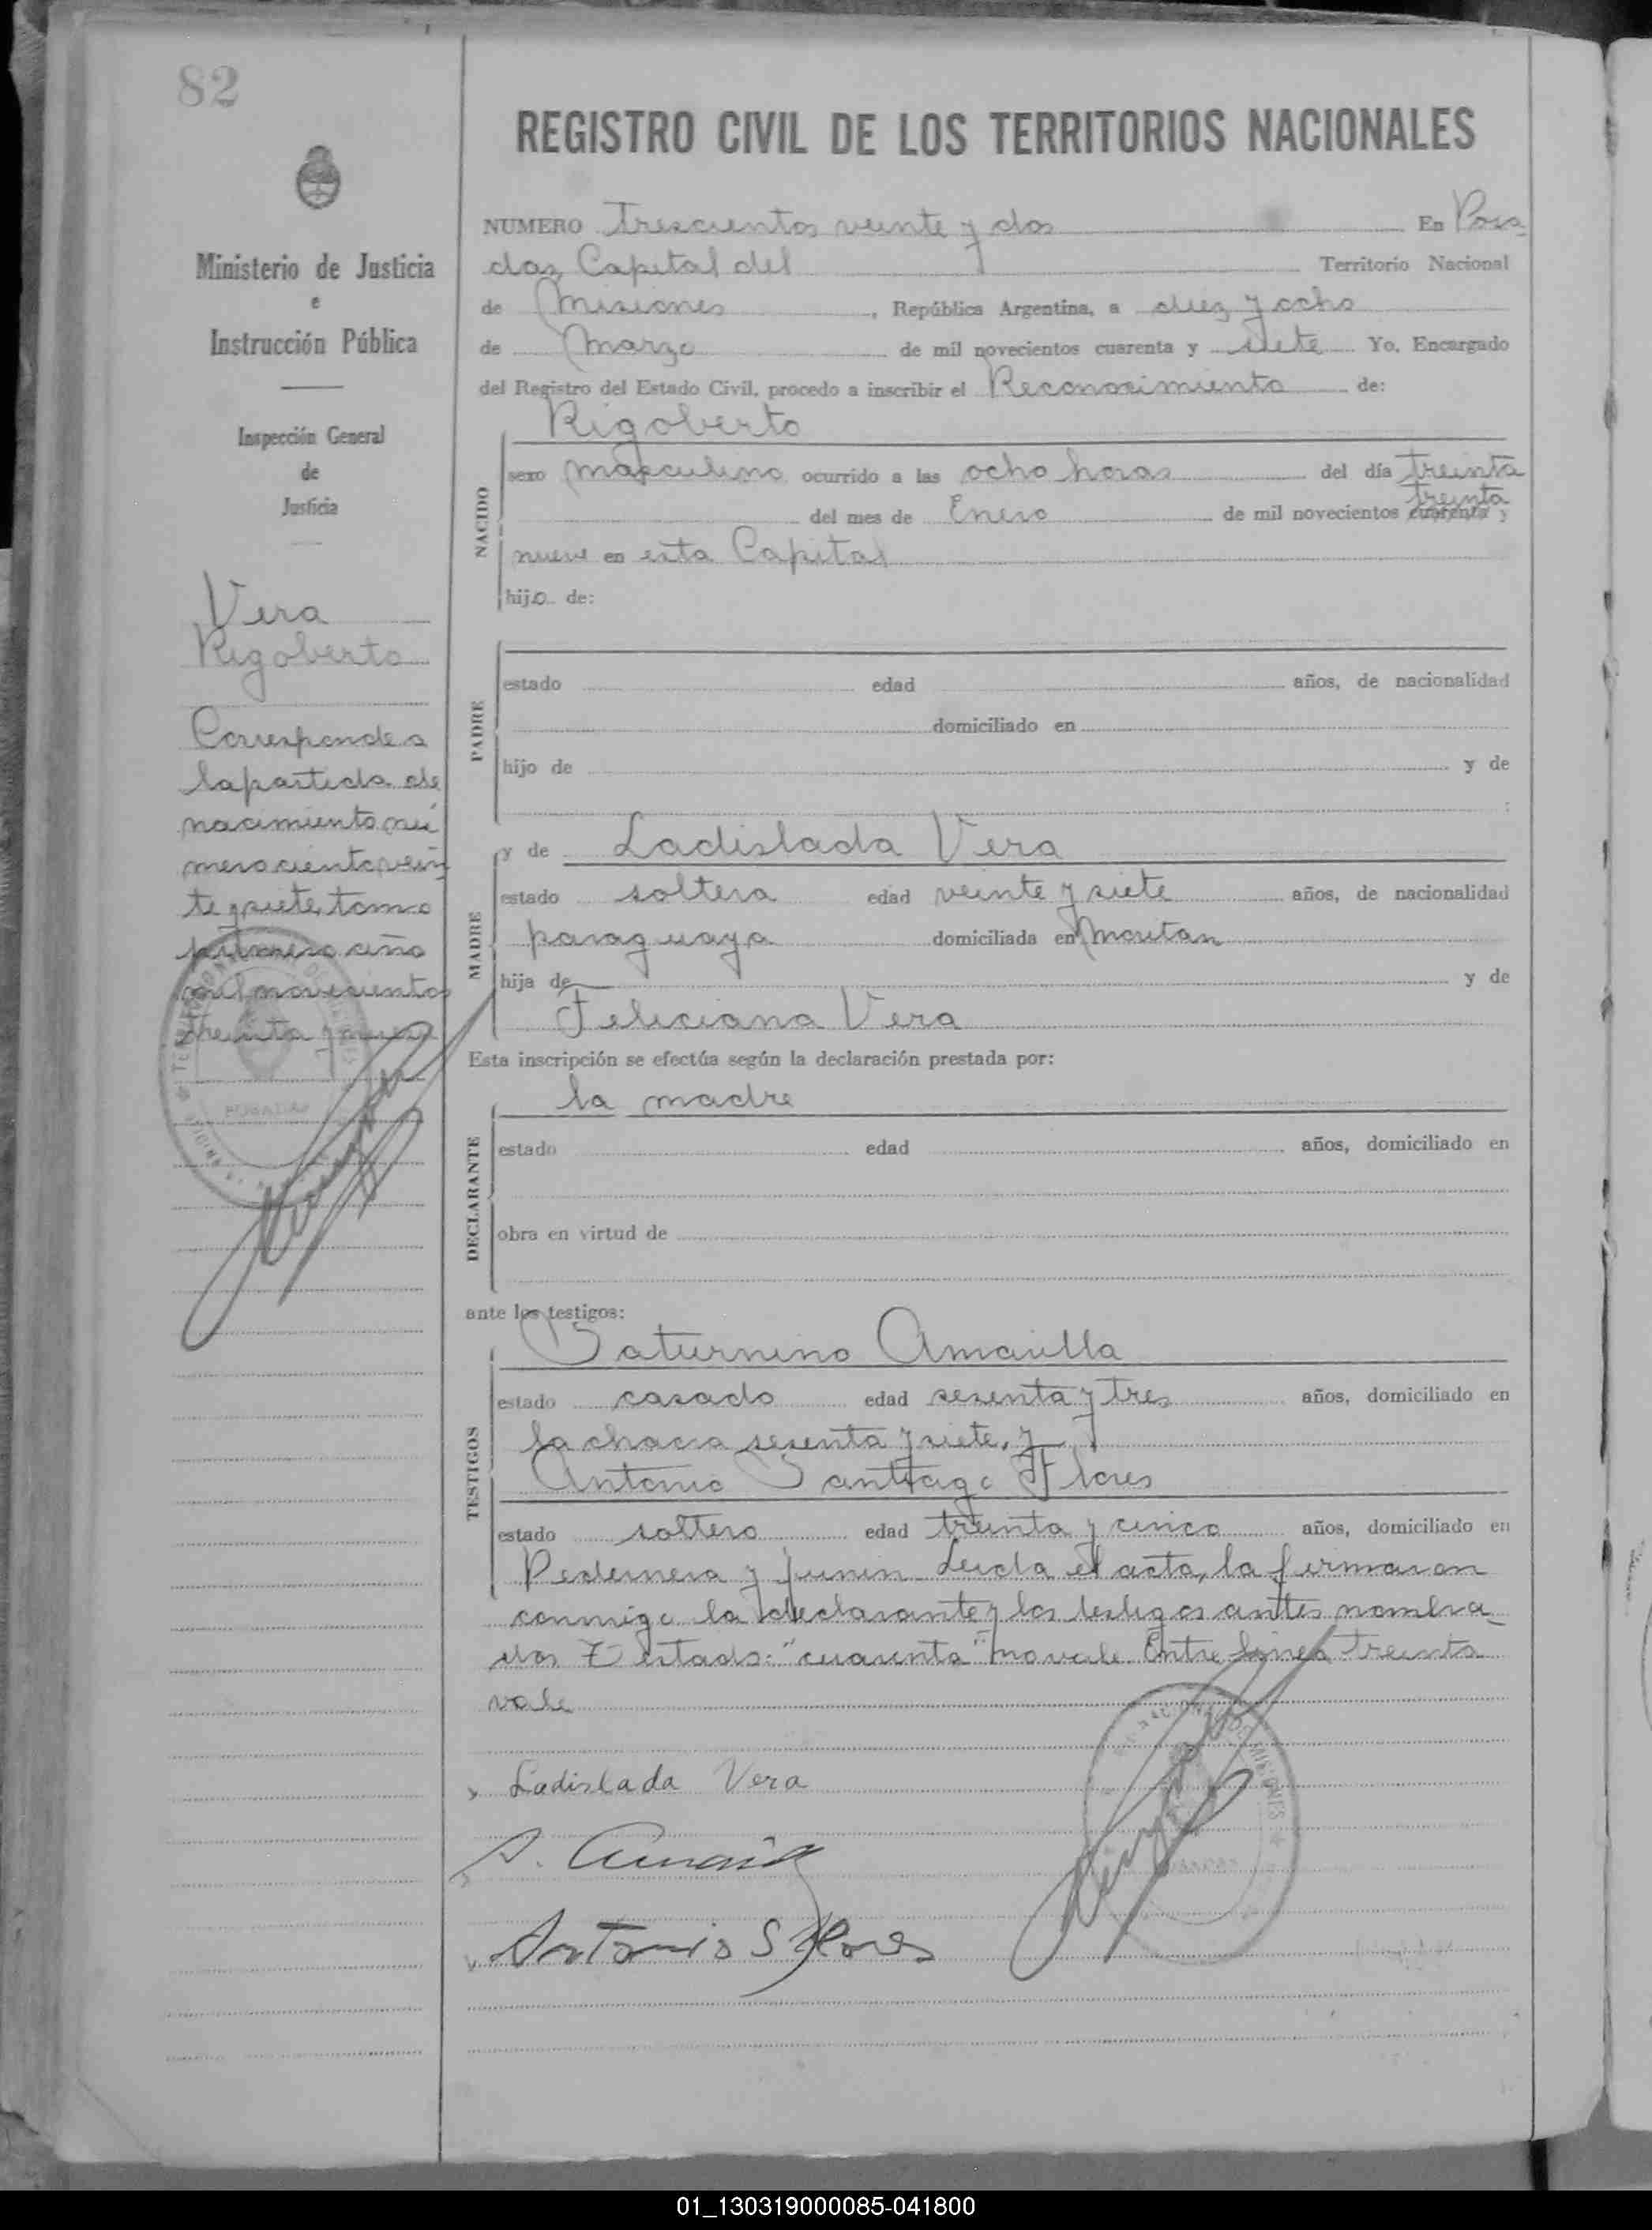 82
REGISTRO CIVIL DE LOS TERRITORIOS NACIONALES
Ministerio de Justicia
e
Instrucción Pública
Inspección General
de
Justicia
Vera
Rigoberto
Corresponde a
la partida de
nacimiento nú
mero ciento vein
te y siete, tomo
primero año
mil novecientos
treinta y nueve
NUMERO Trescientos veinte y dos En Posa
das, Capital del Territorio Nacional
de Misiones, República Argentina, a diez y ocho
de Marzo de mil novecientos cuarenta y siete Yo, Encargado
del Registro del Estado Civil, procedo a inscribir el Reconocimiento de:
Rigoberto
NACIDO
sexo masculino ocurrido a las ocho horas del día treinta
treinta
del mes de Enero de mil novecientos cuarenta y
nueve en esta Capital
hijo de:
PADRE
estado edad años, de nacionalidad
domiciliado en
hijo de y de
:
MADRE
y de Ladislada Vera
estado soltera edad veinte y siete años, de nacionalidad
paraguaya domiciliada en
hija de y de
Feliciana Vera
Esta inscripción se efectúa según la declaración prestada por:
DECLARANTE
la madre
estado edad años, domiciliado en
obra en virtud de
ante los testigos:
TESTIGOS
Saturnino Amarilla
estado casado edad sesenta y tres años, domiciliado en
la chacra sesenta y siete, y
Antonio Santiago Flores
estado soltero edad treinta y cinco años, domiciliado en
Pedernera y Junin Leida el acta, la firmaron
conmigo la declarante y los testigos antes nombra-
dos Testado: "cuarenta" no vale. Entre linea treinta
vale
x Ladislada Vera
S. Amarilla
Antonio S Flores
POSADAS
01_130319000085-041800